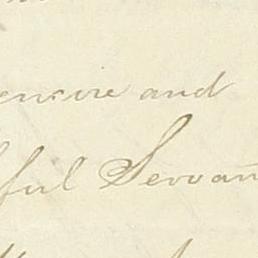 encire and
ful Servan